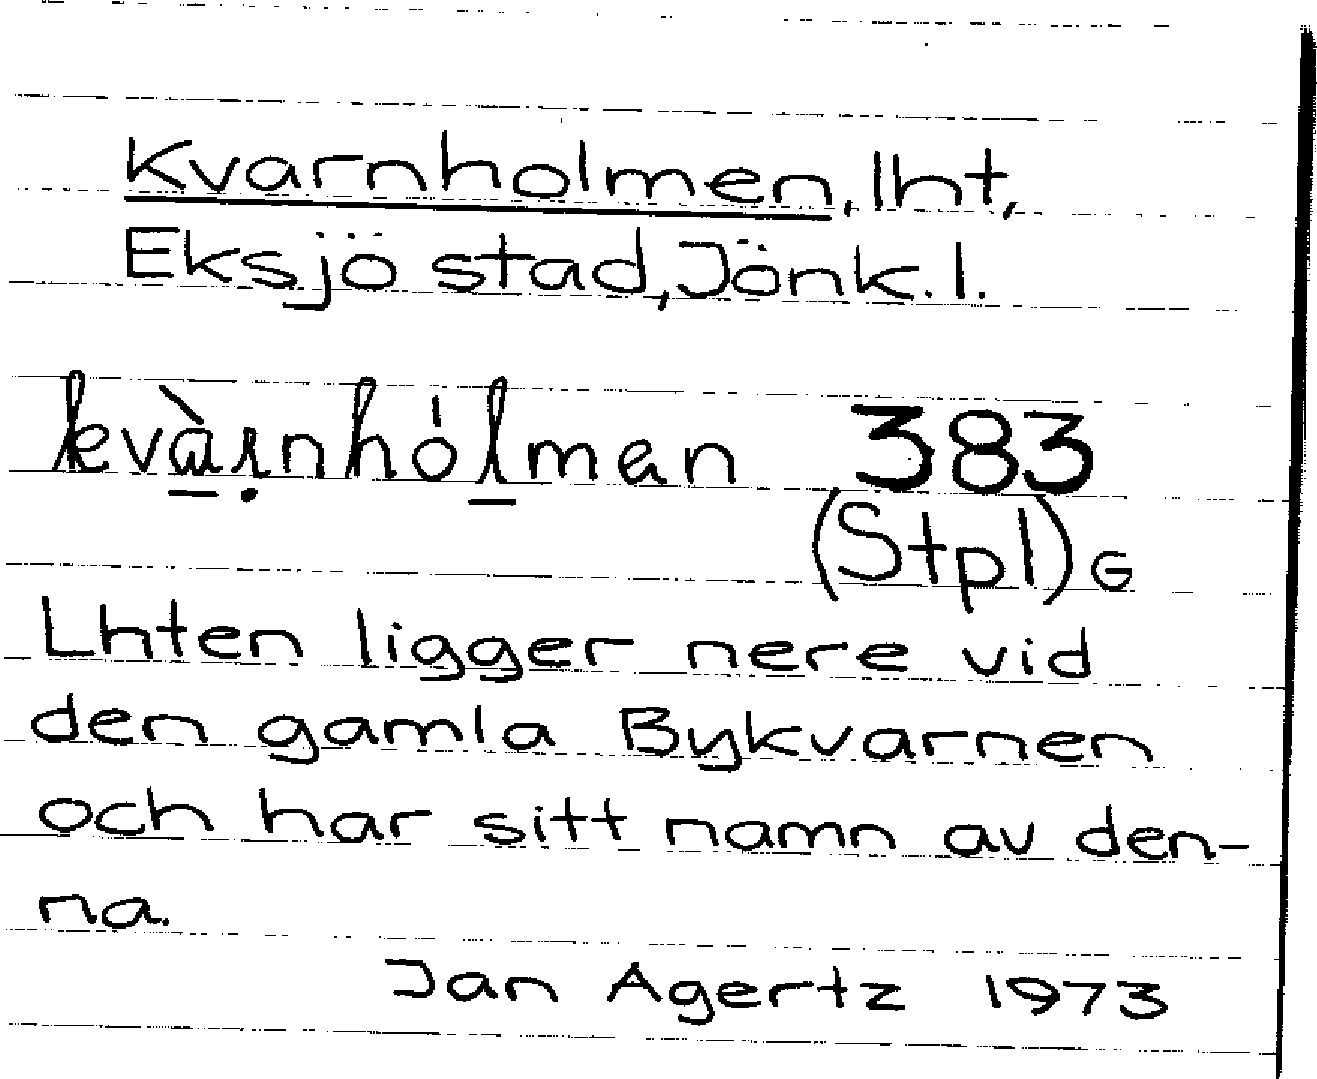 Kvarnholmen, lht,
Eksjö stad, Jönk. l.
kvà̱ṛnhó̍ḻmən 383
(Stpl) G
Lhten ligger nere vid
den gamla Bykvarnen
och har sitt namn av den-
na.
Jan Agertz 1973